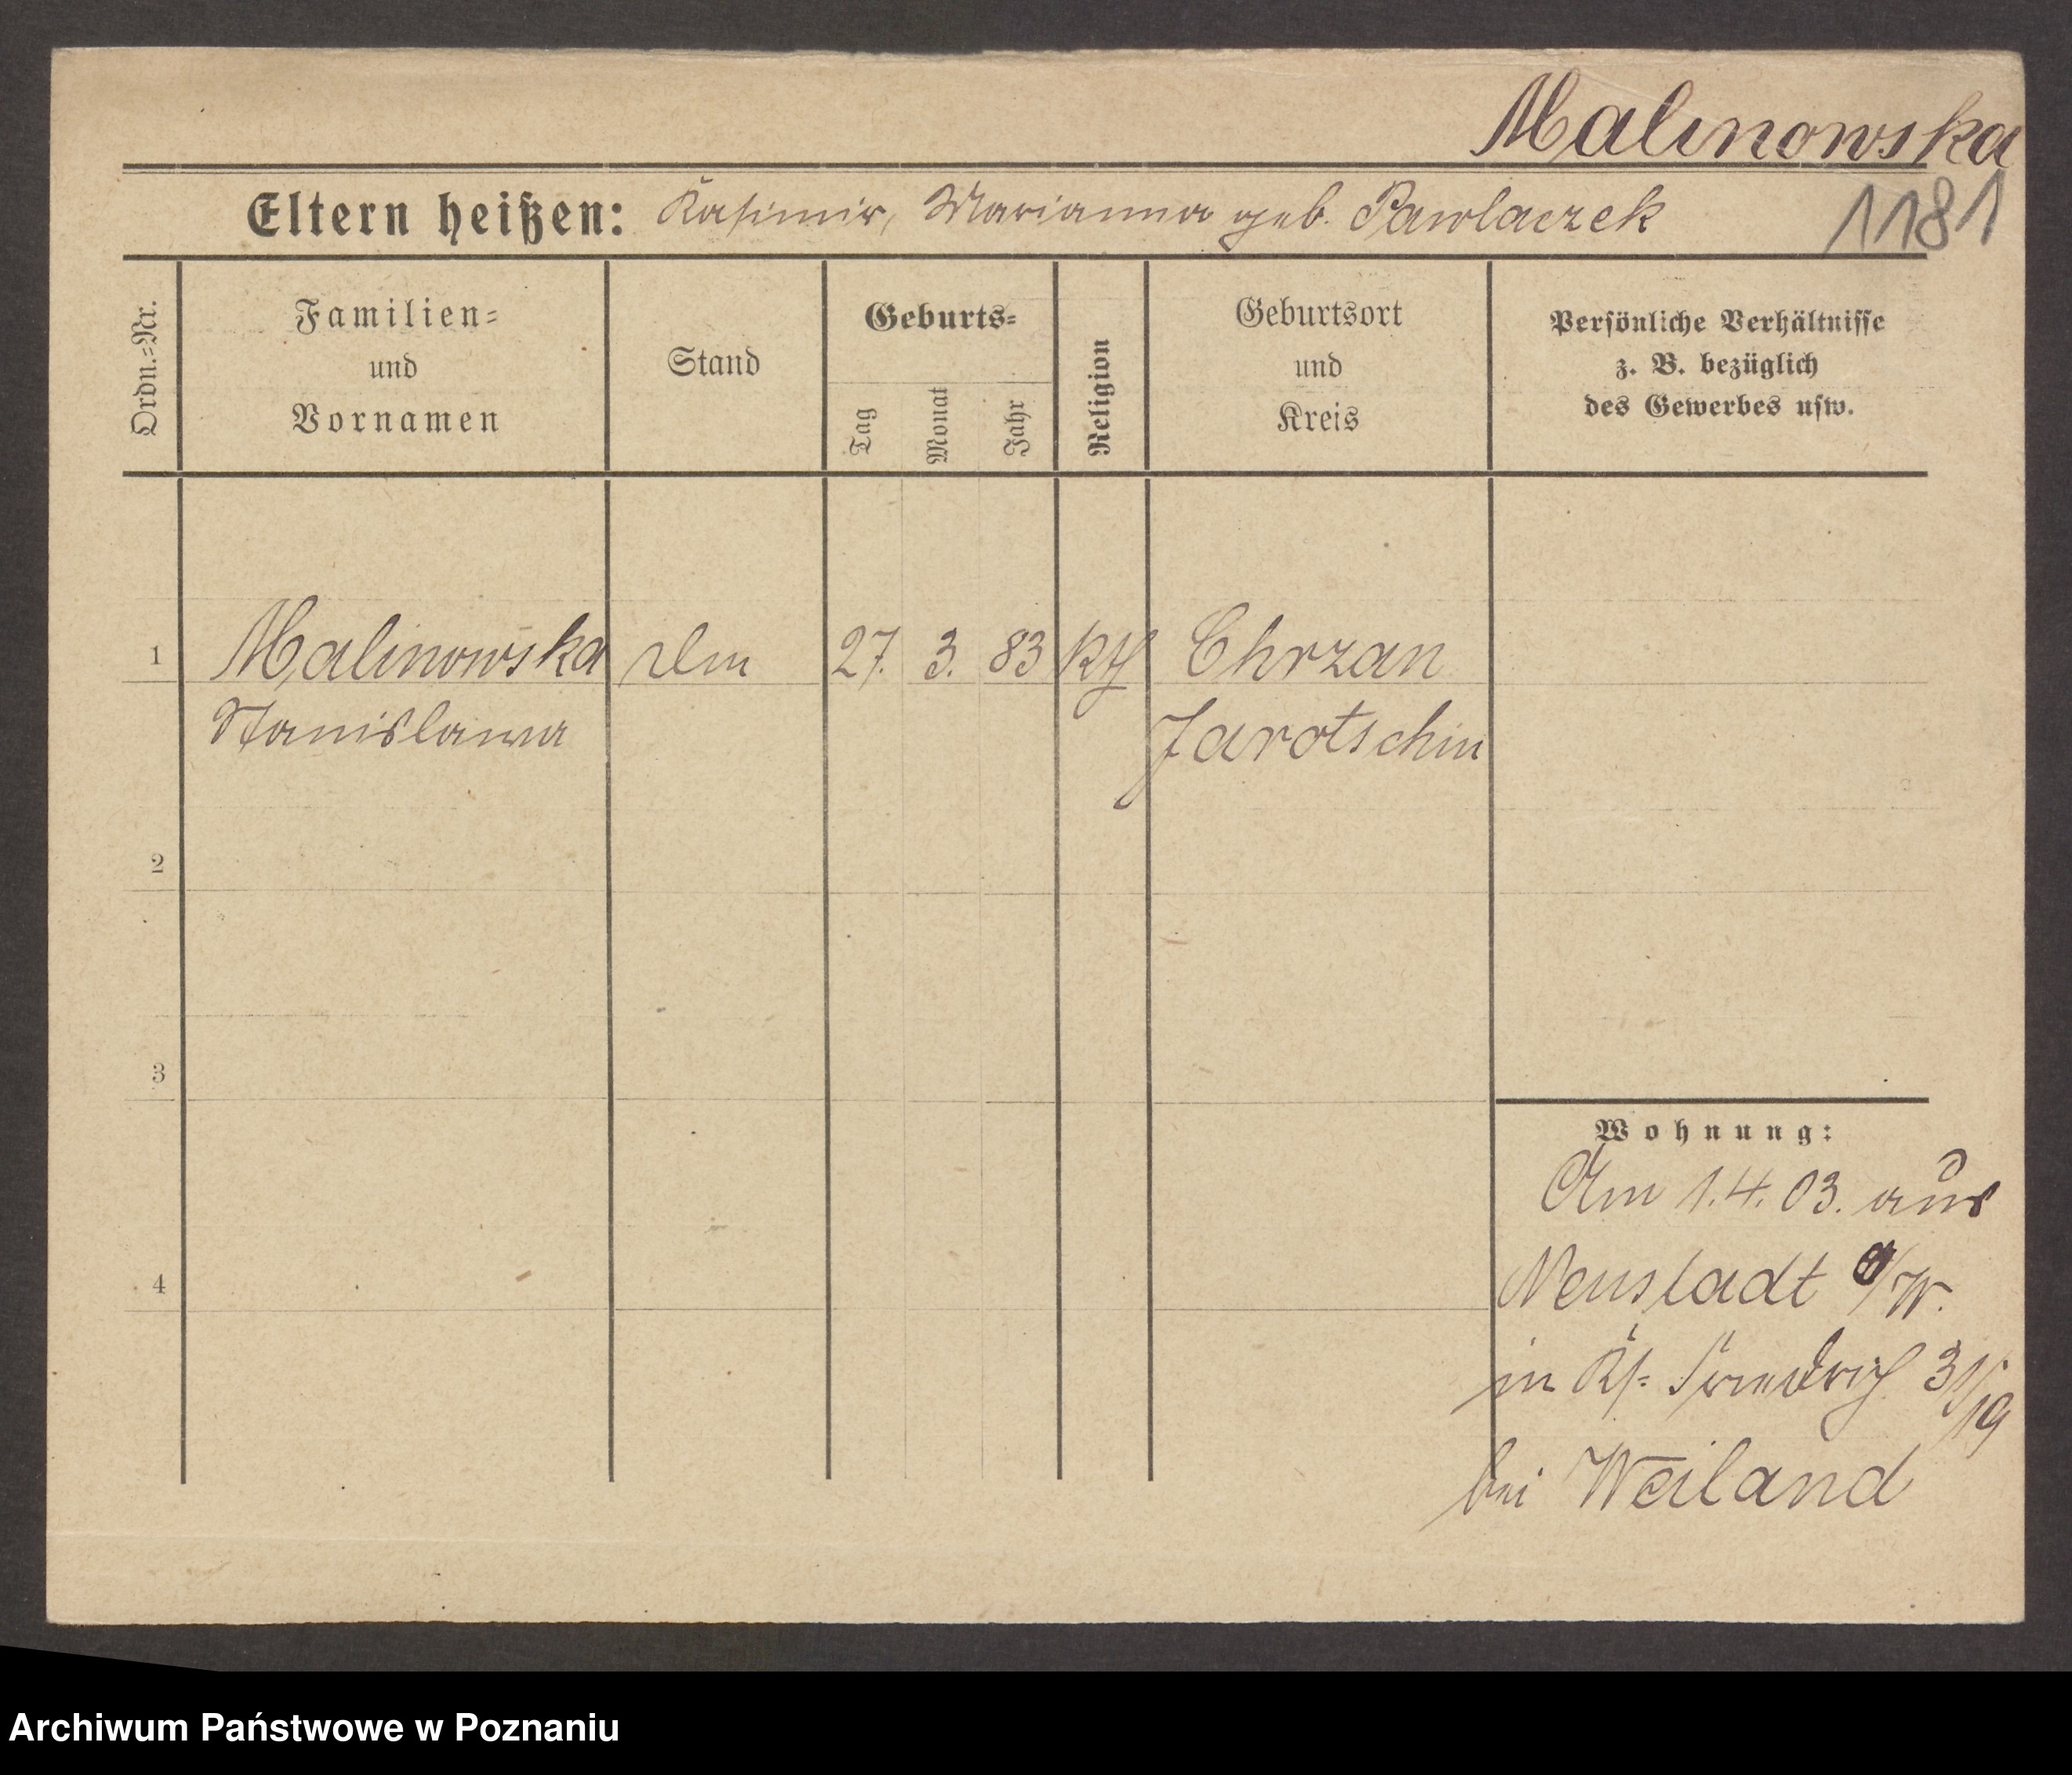 Malinowska
1181
Eltern heißen: Kasimir, Marianna geb. Pawlaczek
Ordn.=Nr.
Familien=
und
Vornamen
Stand
Geburts=
Tag
Monat
Jahr
Religion
Geburtsort
und
Kreis
Persönliche Verhältnisse
z. B. bezüglich
des Gewerbes usw.
1 Malinowska 27. 3. 83 kth Chrzan
Stanislawa Jarotschin
2
3
4
Wohnung:
Am 1.4.03. aus
Neustadt a/W.
in Friedrich 31/19
bei Weiland
Archiwum Państwowe w Poznaniu